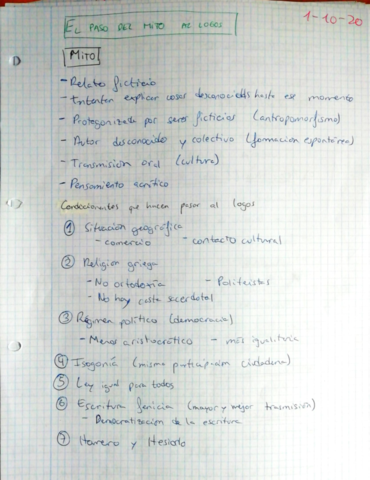 EL PASO DEL MITO AL LOGOS
1-10-20
MITO
- Relato ficticio
- Intentan explicar cosas desconocidas hasta ese momento
- Protagonizada por seres ficticios (antropomorfismo)
- Autor desconocido y colectivo (formación espontánea)
- Transmisión oral (cultura)
- Pensamiento acrítico
Condicionantes que hacen pasar al logos
① Situación geográfica
- comercio - contacto cultural
② Religión griega
- No ortodoxia - Politeistas
- No hay casta sacerdotal
③ Régimen político (democracia)
- Menos aristocrático - más igualitaria
④ Isogonía (misma participación ciudadana)
⑤ Ley igual para todos
⑥ Escritura fenicia (mayor y mejor trasmisión)
- Democratización de la escritura
⑦ Homero y Hesiodo